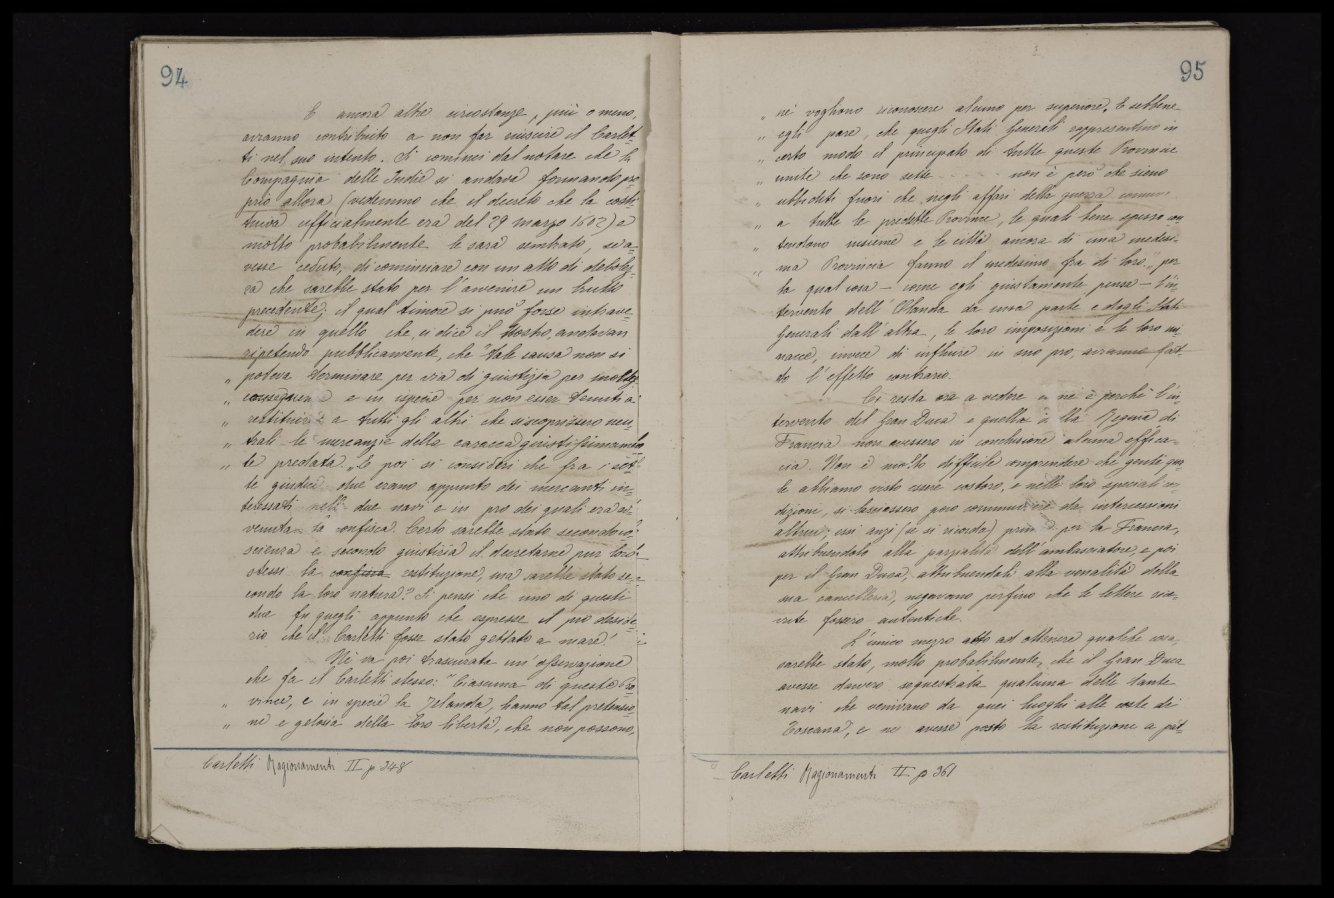 94
E ancora altre circostanze, più o meno,
avranno contribuito a non far riuscire il Carlet-
ti nel suo intento. Si cominci dal notare che la
Compagnia delle Indie si andava formando pro-
prio allora (vedemmo che il decreto che la costi-
tuiva ufficialmente era del 29 marzo 1602) e
molto probabilmente le sarà sembrato, se a-
vesse ceduto, di cominciare con un atto di debolez-
za che sarebbe stato per l'avvenire un brutto
precedente; il qual timore si può forse intrave-
dere in quello che, ci dice il nostro, andavan
ripetendo pubblicamente, che "tale causa non si
" poteva terminare per via di giustizia per molte
" conseguenze e in specie per non esser tenuti a
" restituire a tutti gli altri che si scoprissero neu-
" trali le mercanzie della caracca giustissimamen-
" te predata." E poi si consideri che fra i set-
te giudici due erano appunto dei mercanti in-
teressati nelle due navi e in pro dei quali era av-
venuta la confisca. Certo sarebbe stato secondo co-
scienza e secondo giustizia il decretarne pur loro
stessi la confisca restituzione, ma sarebbe stato se-
condo la loro natura? Si pensi che uno di questi
due fu quegli appunto che espresse il pio deside-
rio che il Carletti fosse stato gettato a mare!
Nè va poi trascurata un'osservazione
che fa il Carletti stesso: "Ciascuna di queste Pro-
" vince, e in specie la Zelanda, hanno tal pretensio-
" ne e gelosia della loro libertà, che non possono,
Carletti Ragionamenti II p 348
95
" nè vogliono riconoscere alcuno per superiore, E sebbene
" egli pare, che quegli Stati Generali rappresentino in
" certo modo il principato di tutte queste Provincie
" unite che sono sette ..... non è però che sieno
" ubbiditi fuori che negli affari della guerra comune
" a tutte le predette Province, le quali bene spesso con-
" tendono insieme e le città ancora di una medesi-
" ma Provincia fanno il medesimo fra di loro", per
la qual cosa – come egli giustamente pensa – l'in-
tervento dell'Olanda da una parte e degli Stati
Generali dall'altra, le loro imposizioni e le loro mi-
nacce, invece di influire in suo pro, avranno fat-
to l'effetto contrario.
Ci resta ora a vedere come è perchè l'in-
tervento del Gran Duca e quello della Regina di
Francia non avessero in conclusione alcuna effica-
cia. Non è molto difficile comprendere che gente qua-
le abbiamo visto essere costoro, e nelle loro speciali con-
dizioni, si lasciassero poco commuovere da intercessioni
altrui; essi anzi (se si ricorda) prima per la Francia,
attribuendolo alla parzialità dell'ambasciatore, e poi
per il Gran Duca, attribuendola alla venalità della
sua cancelleria, negavano perfino che le lettere rice-
vute fossero autentiche.
L'unico mezzo atto ad ottenere qualche cosa
sarebbe stato, molto probabilmente, che il Gran Duca
avesse davvero sequestrata qualcuna delle tante
navi che venivano da quei luoghi alle coste di
Toscana, e ne avesse posto la restituzione a pat-
Carletti Ragionamenti II p 361